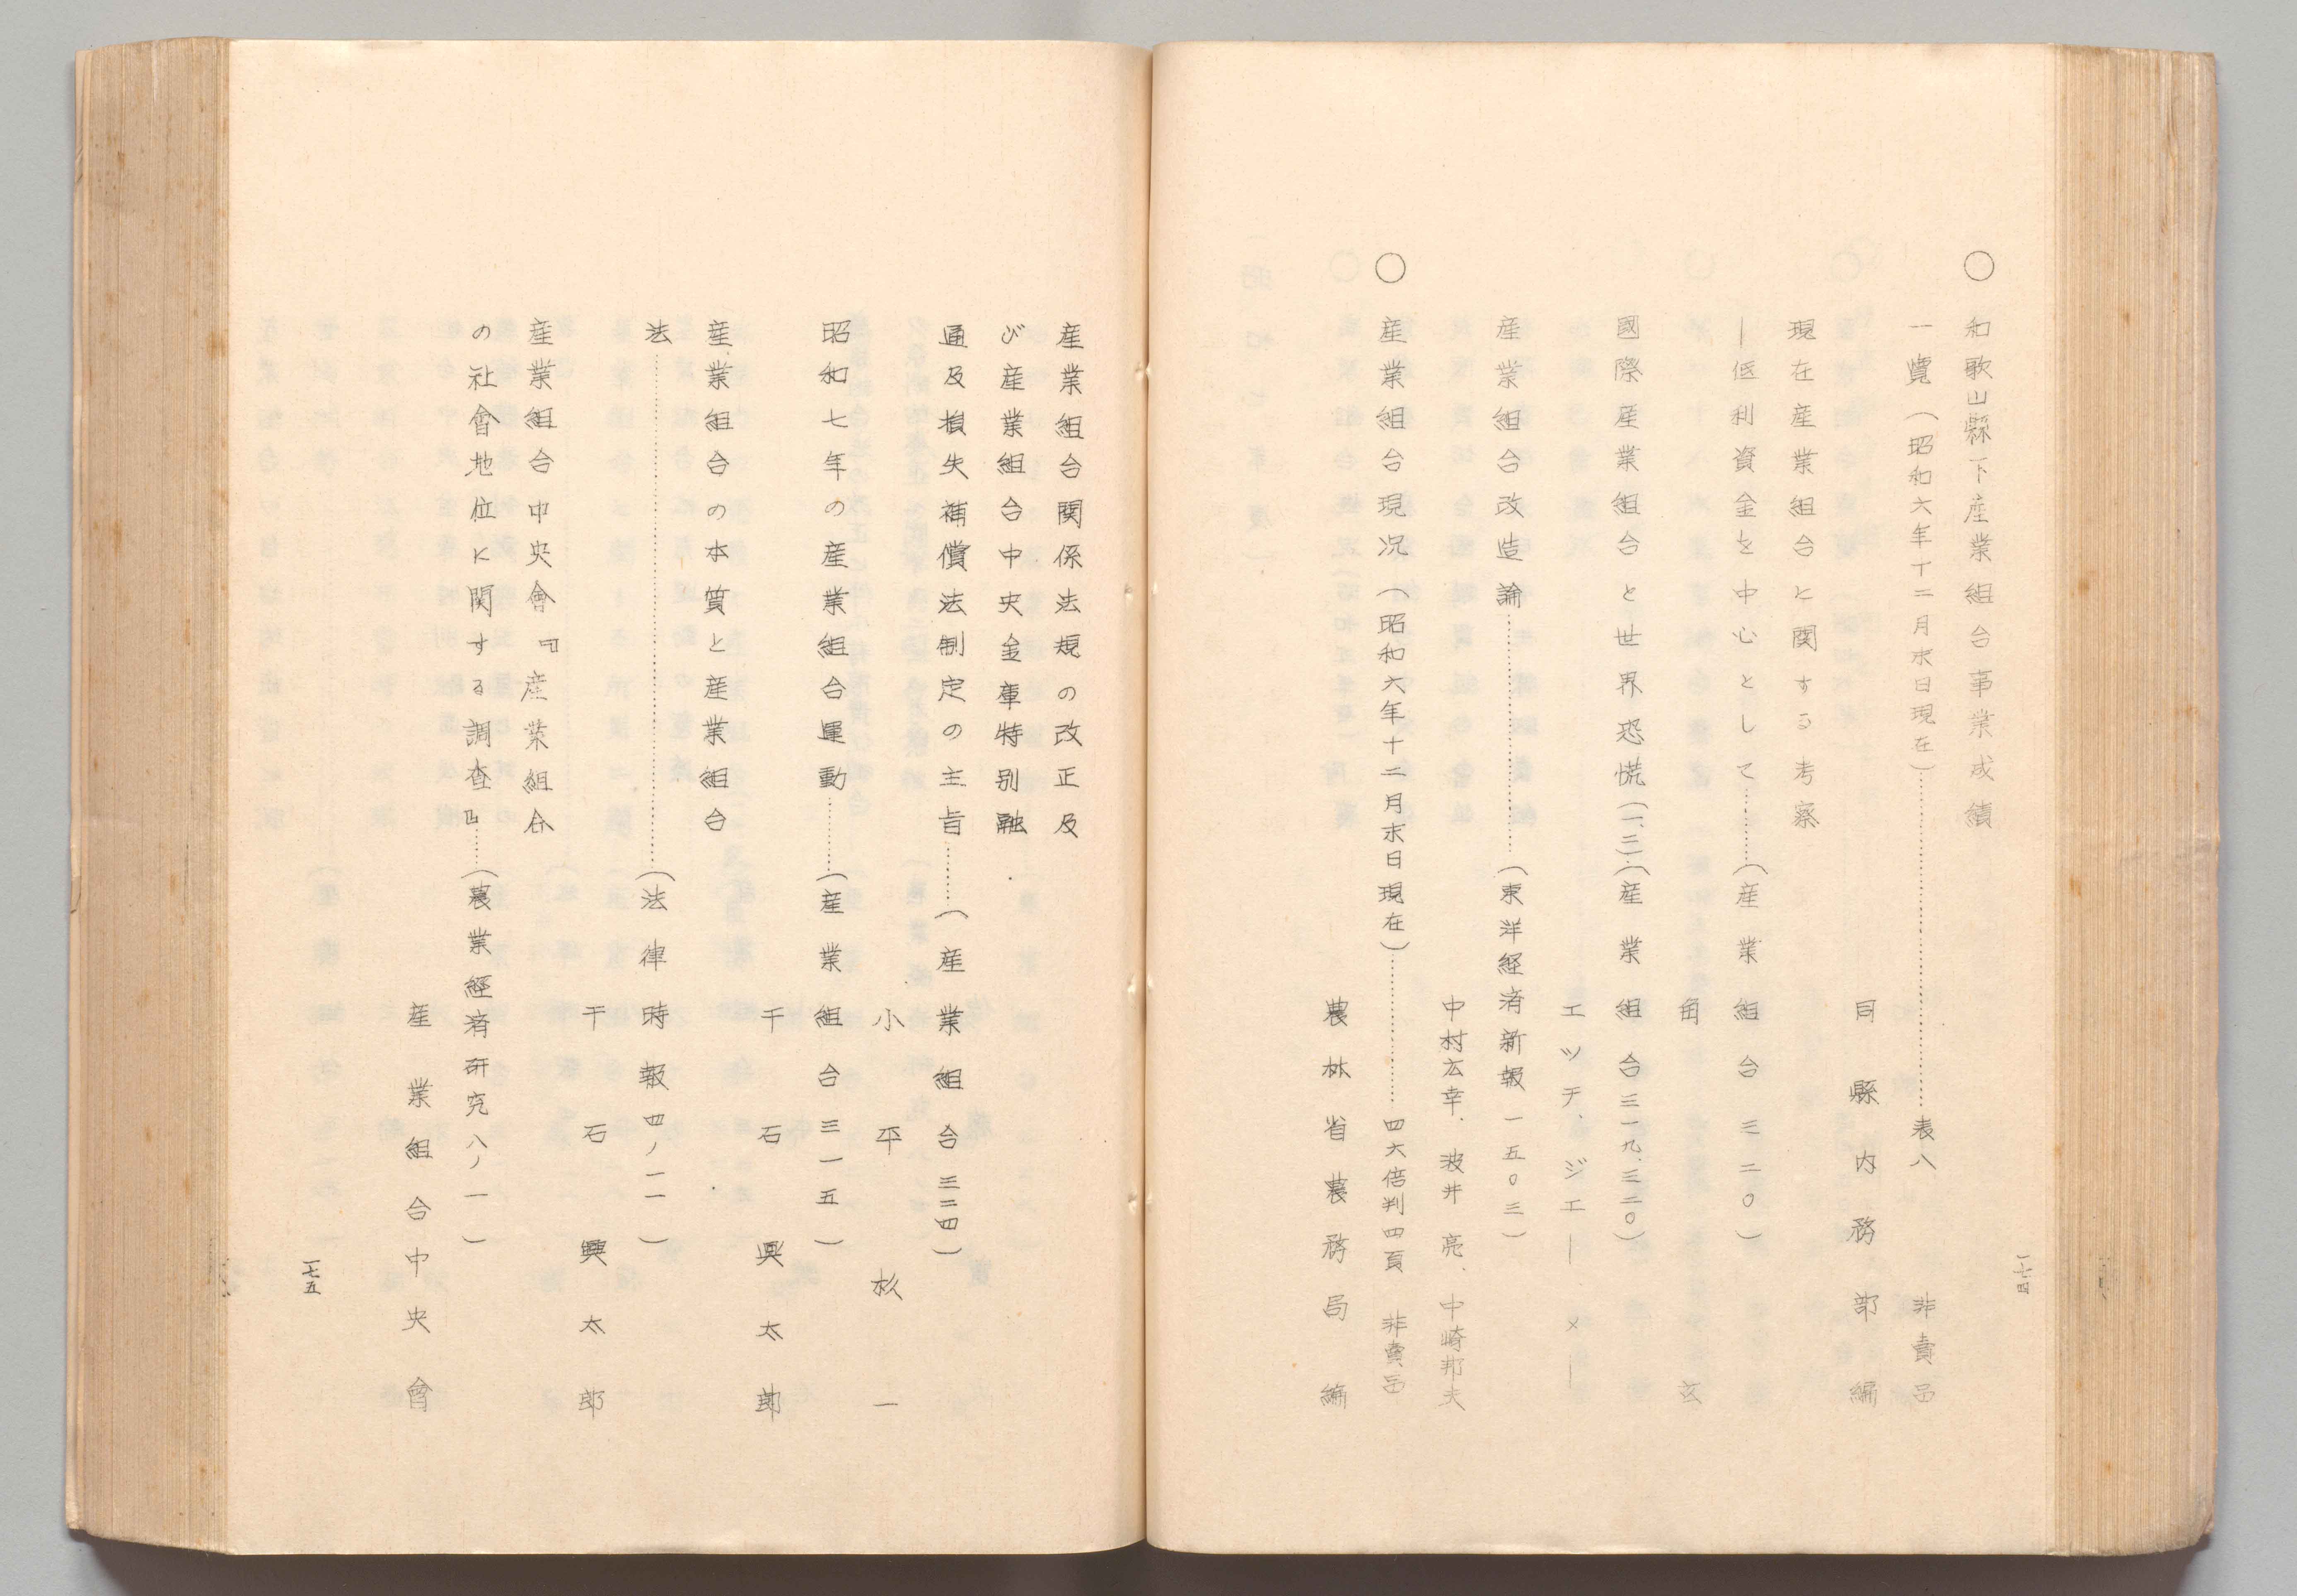 ○ 和歌山縣下産業組合事業成績
一覽（昭和六年十二月末日現在）…………表八 非賣品
同縣内務部編
現在産業組合に関する考察
―低利資金を中心として………（産業組合三二〇）
角 玄
國際産業組合と世界恐慌（一、二）（産業組合三一九、三二〇）
エッチ、ジエー メー
産業組合改造論…………（東洋経済新報一五〇三）
中村広幸、波井亮、中崎邦夫
○ 産業組合現況（昭和六年十二月末日現在）…………四六倍判四頁 非賣品
農林省農務局編
一七四
産業組合関係法規の改正及
び産業組合中央金庫特別融
通及損失補償法制定の主旨………（産業組合三二四）
小平权一
昭和七年の産業組合運動………（産業組合三一五）
千石興太郎
産業組合の本質と産業組合
法…………（法律時報四ノ一一）
千石興太郎
産業組合中央會『産業組合
の社會地位に関する調査』……（農業経済研究八ノ一）
産業組合中央會
一七五